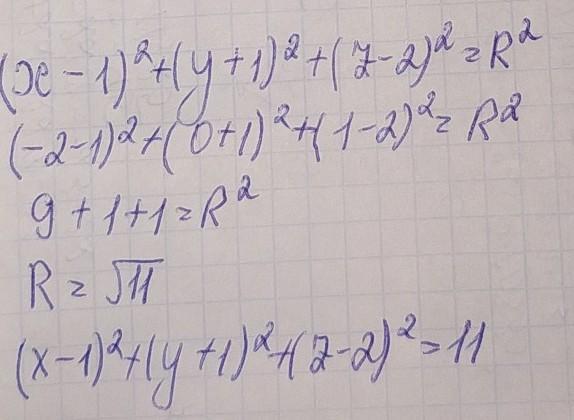 (x-1)²+(y+1)²+(z-2)²=R²
(-2-1)²+(0+1)²+(1-2)²=R²
9+1+1=R²
R=√11
(x-1)²+(y+1)²+(z-2)²=11